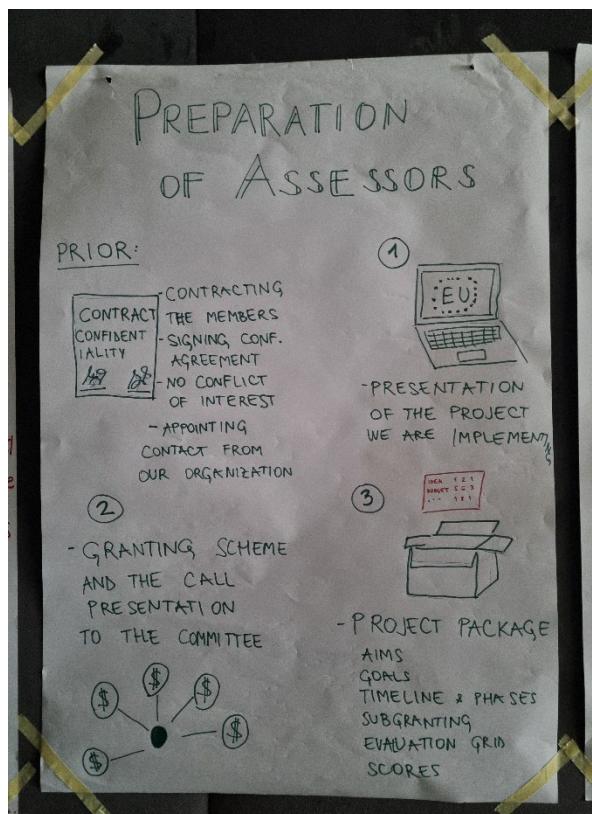 PREPARATION
OF ASSESSORS
PRIOR:
CONTRACT
CONFIDENT
IALITY
- CONTRACTING
THE MEMBERS
- SIGNING CONF.
AGREEMENT
- NO CONFLICT
OF INTEREST
- APPOINTING
CONTACT FROM
OUR ORGANIZATION
1
EU
- PRESENTATION
OF THE PROJECT
WE ARE IMPLEMENTING
2
- GRANTING SCHEME
AND THE CALL
PRESENTATION
TO THE COMMITTEE
$ $ $ $ $
3
IDEA 1 2 1
BUDGET 5 6 3
- PROJECT PACKAGE
AIMS
GOALS
TIMELINE & PHASES
SUBGRANTING
EVALUATION GRID
SCORES